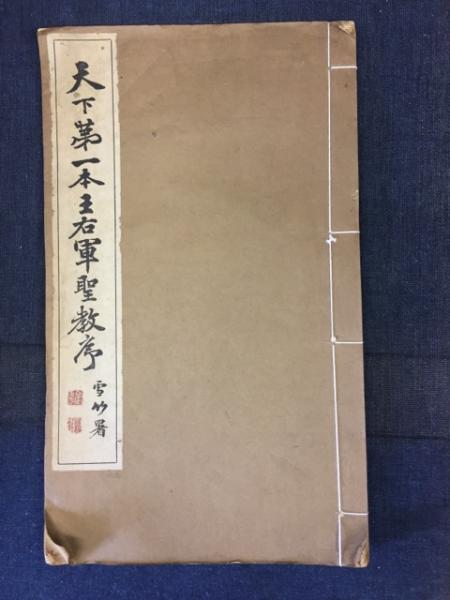 天下第一本王右軍聖教序
雪竹署